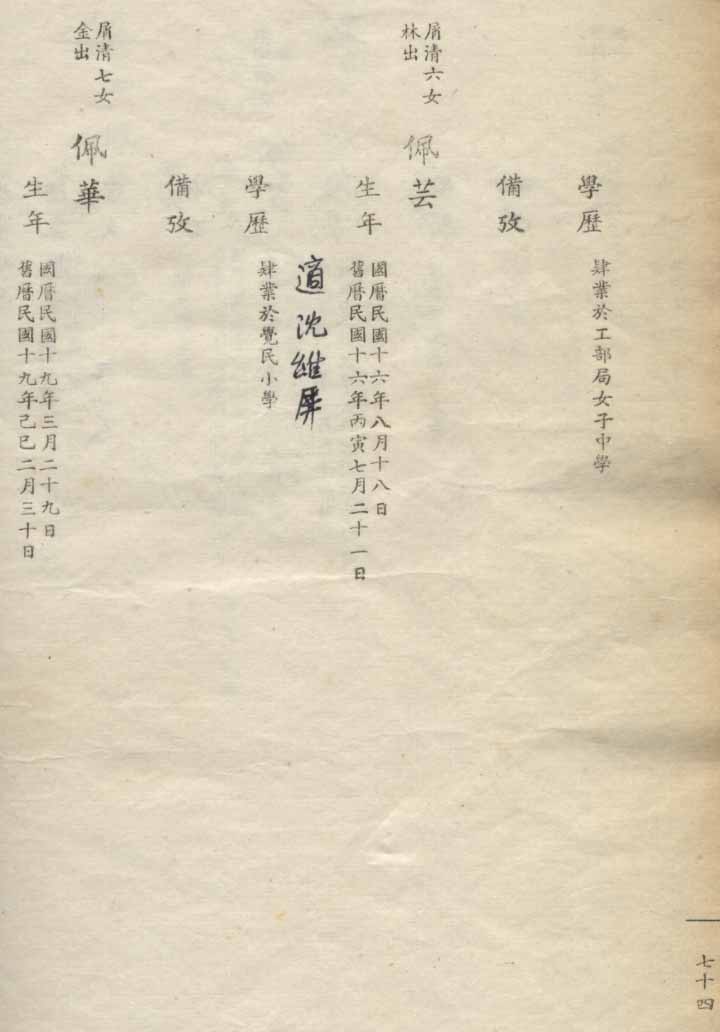 學歷
肄業於工部局女子中學
備攷
屑清六女
林出
佩芸
生年
國曆民國十六年八月十八日
舊曆民國十六年丙寅七月二十一日
適沈維屏
學歷
肄業於覺民小學
備攷
屑清七女
金出
佩華
生年
國曆民國十九年三月二十九日
舊曆民國十九年己巳二月三十日
七十四